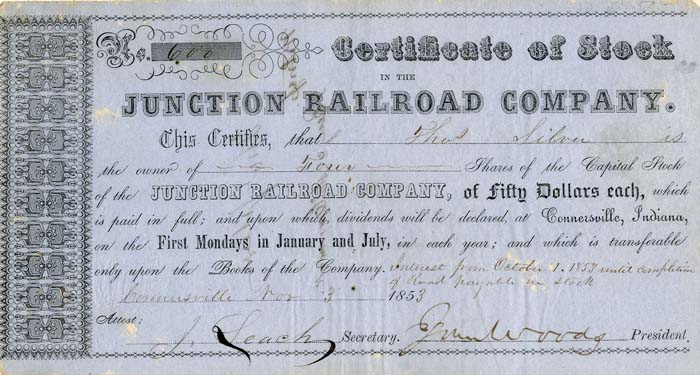 No. 600 Certificate of Stock
IN THE
JUNCTION RAILROAD COMPANY.
This Certifies, that Thos Silver is
the owner of Four Shares of the Capital Stock
of the JUNCTION RAILROAD COMPANY, of Fifty Dollars each, which
is paid in full; and upon which, dividends will be declared, at Connersville, Indiana,
on the First Mondays in January and July, in each year; and which is transferable
only upon the Books of the Company. Interest from October 1. 1853 until completion
of Road payable in stock
Connersville Nov 3 1853
Attest:
J. Leach Secretary. Woods President.